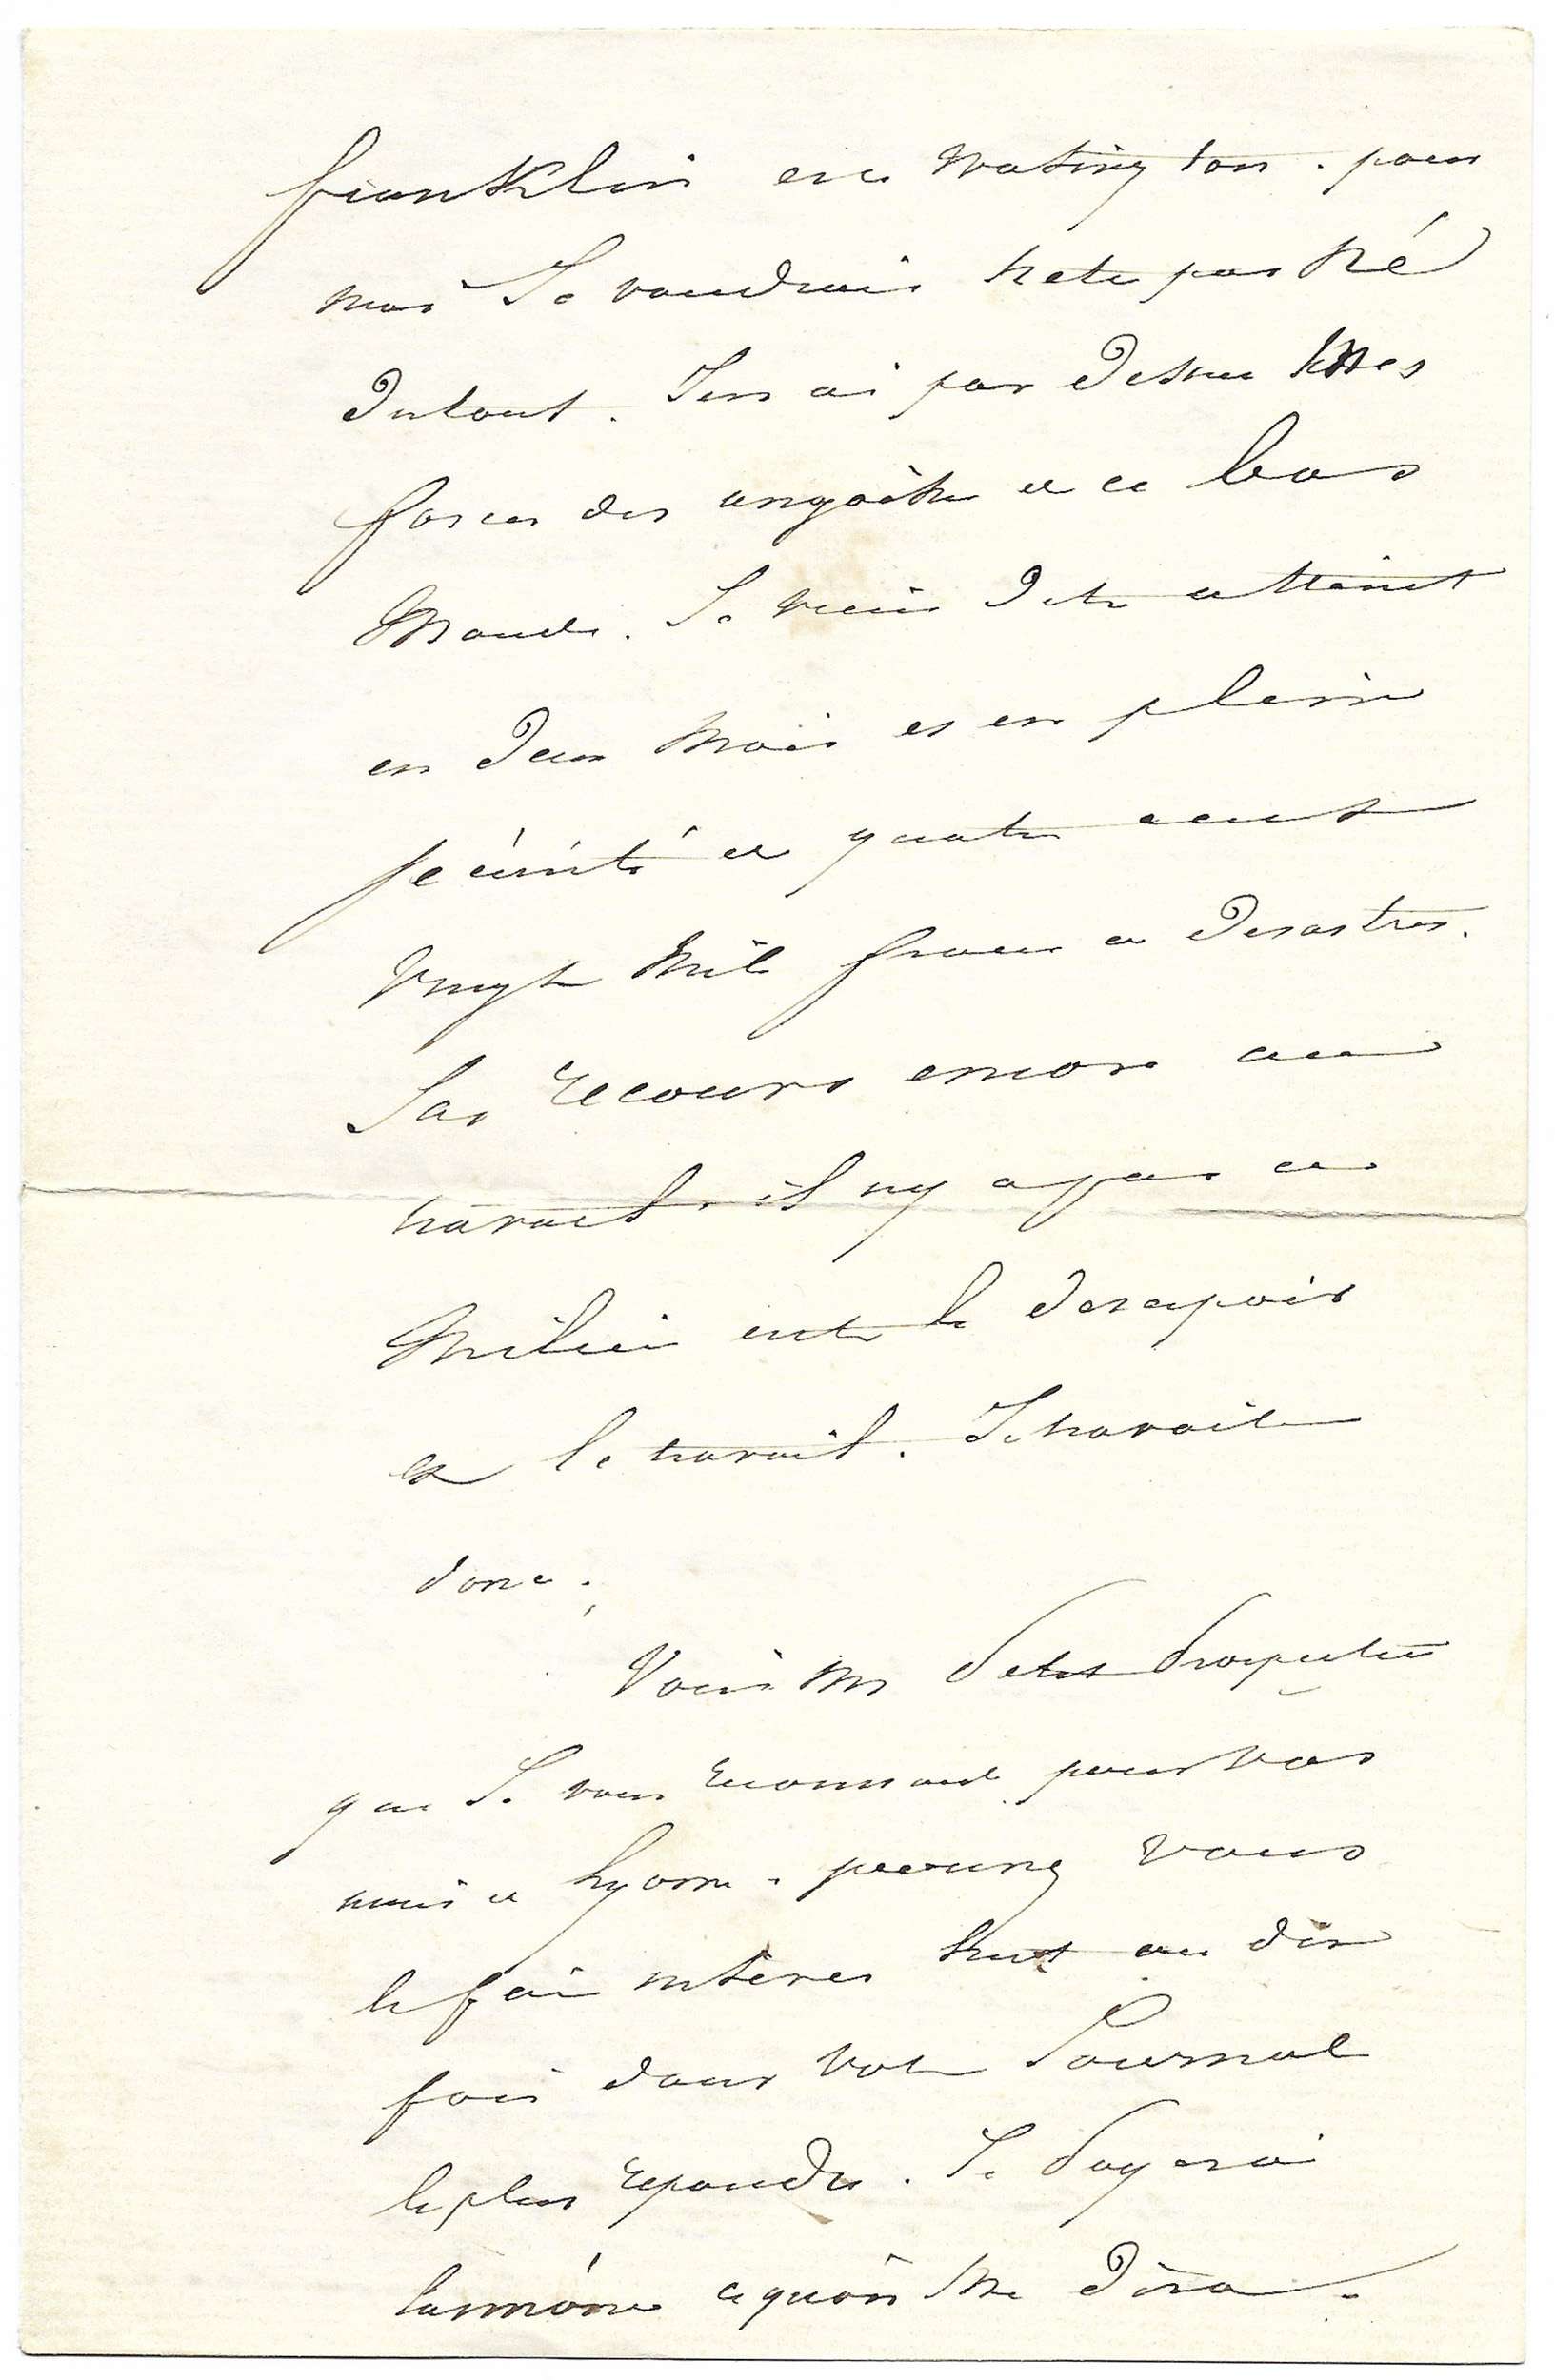 franklin ou Wasington. pour
moi Je voudrais netre pas né
du tout. Jen ai par dessus les
forces des angoisses de ce bas
Monde. Je viens detre atteint
en deux mois et en pleine
sécurité de quatre cent
vingt mille francs de desastres.
Jai recours encore au
travail. il ny a pas de
Milieu entre le desespoir
et le travail. Je travaille
donc.
Voici un Petit Prospectus
que Je vous recommande pour vos
amis a Lyon. pouvez vous
le faire inserer huit ou dix
fois dans votre Journal
le plus repandu. Je Payerai
ce quon Me Dira.